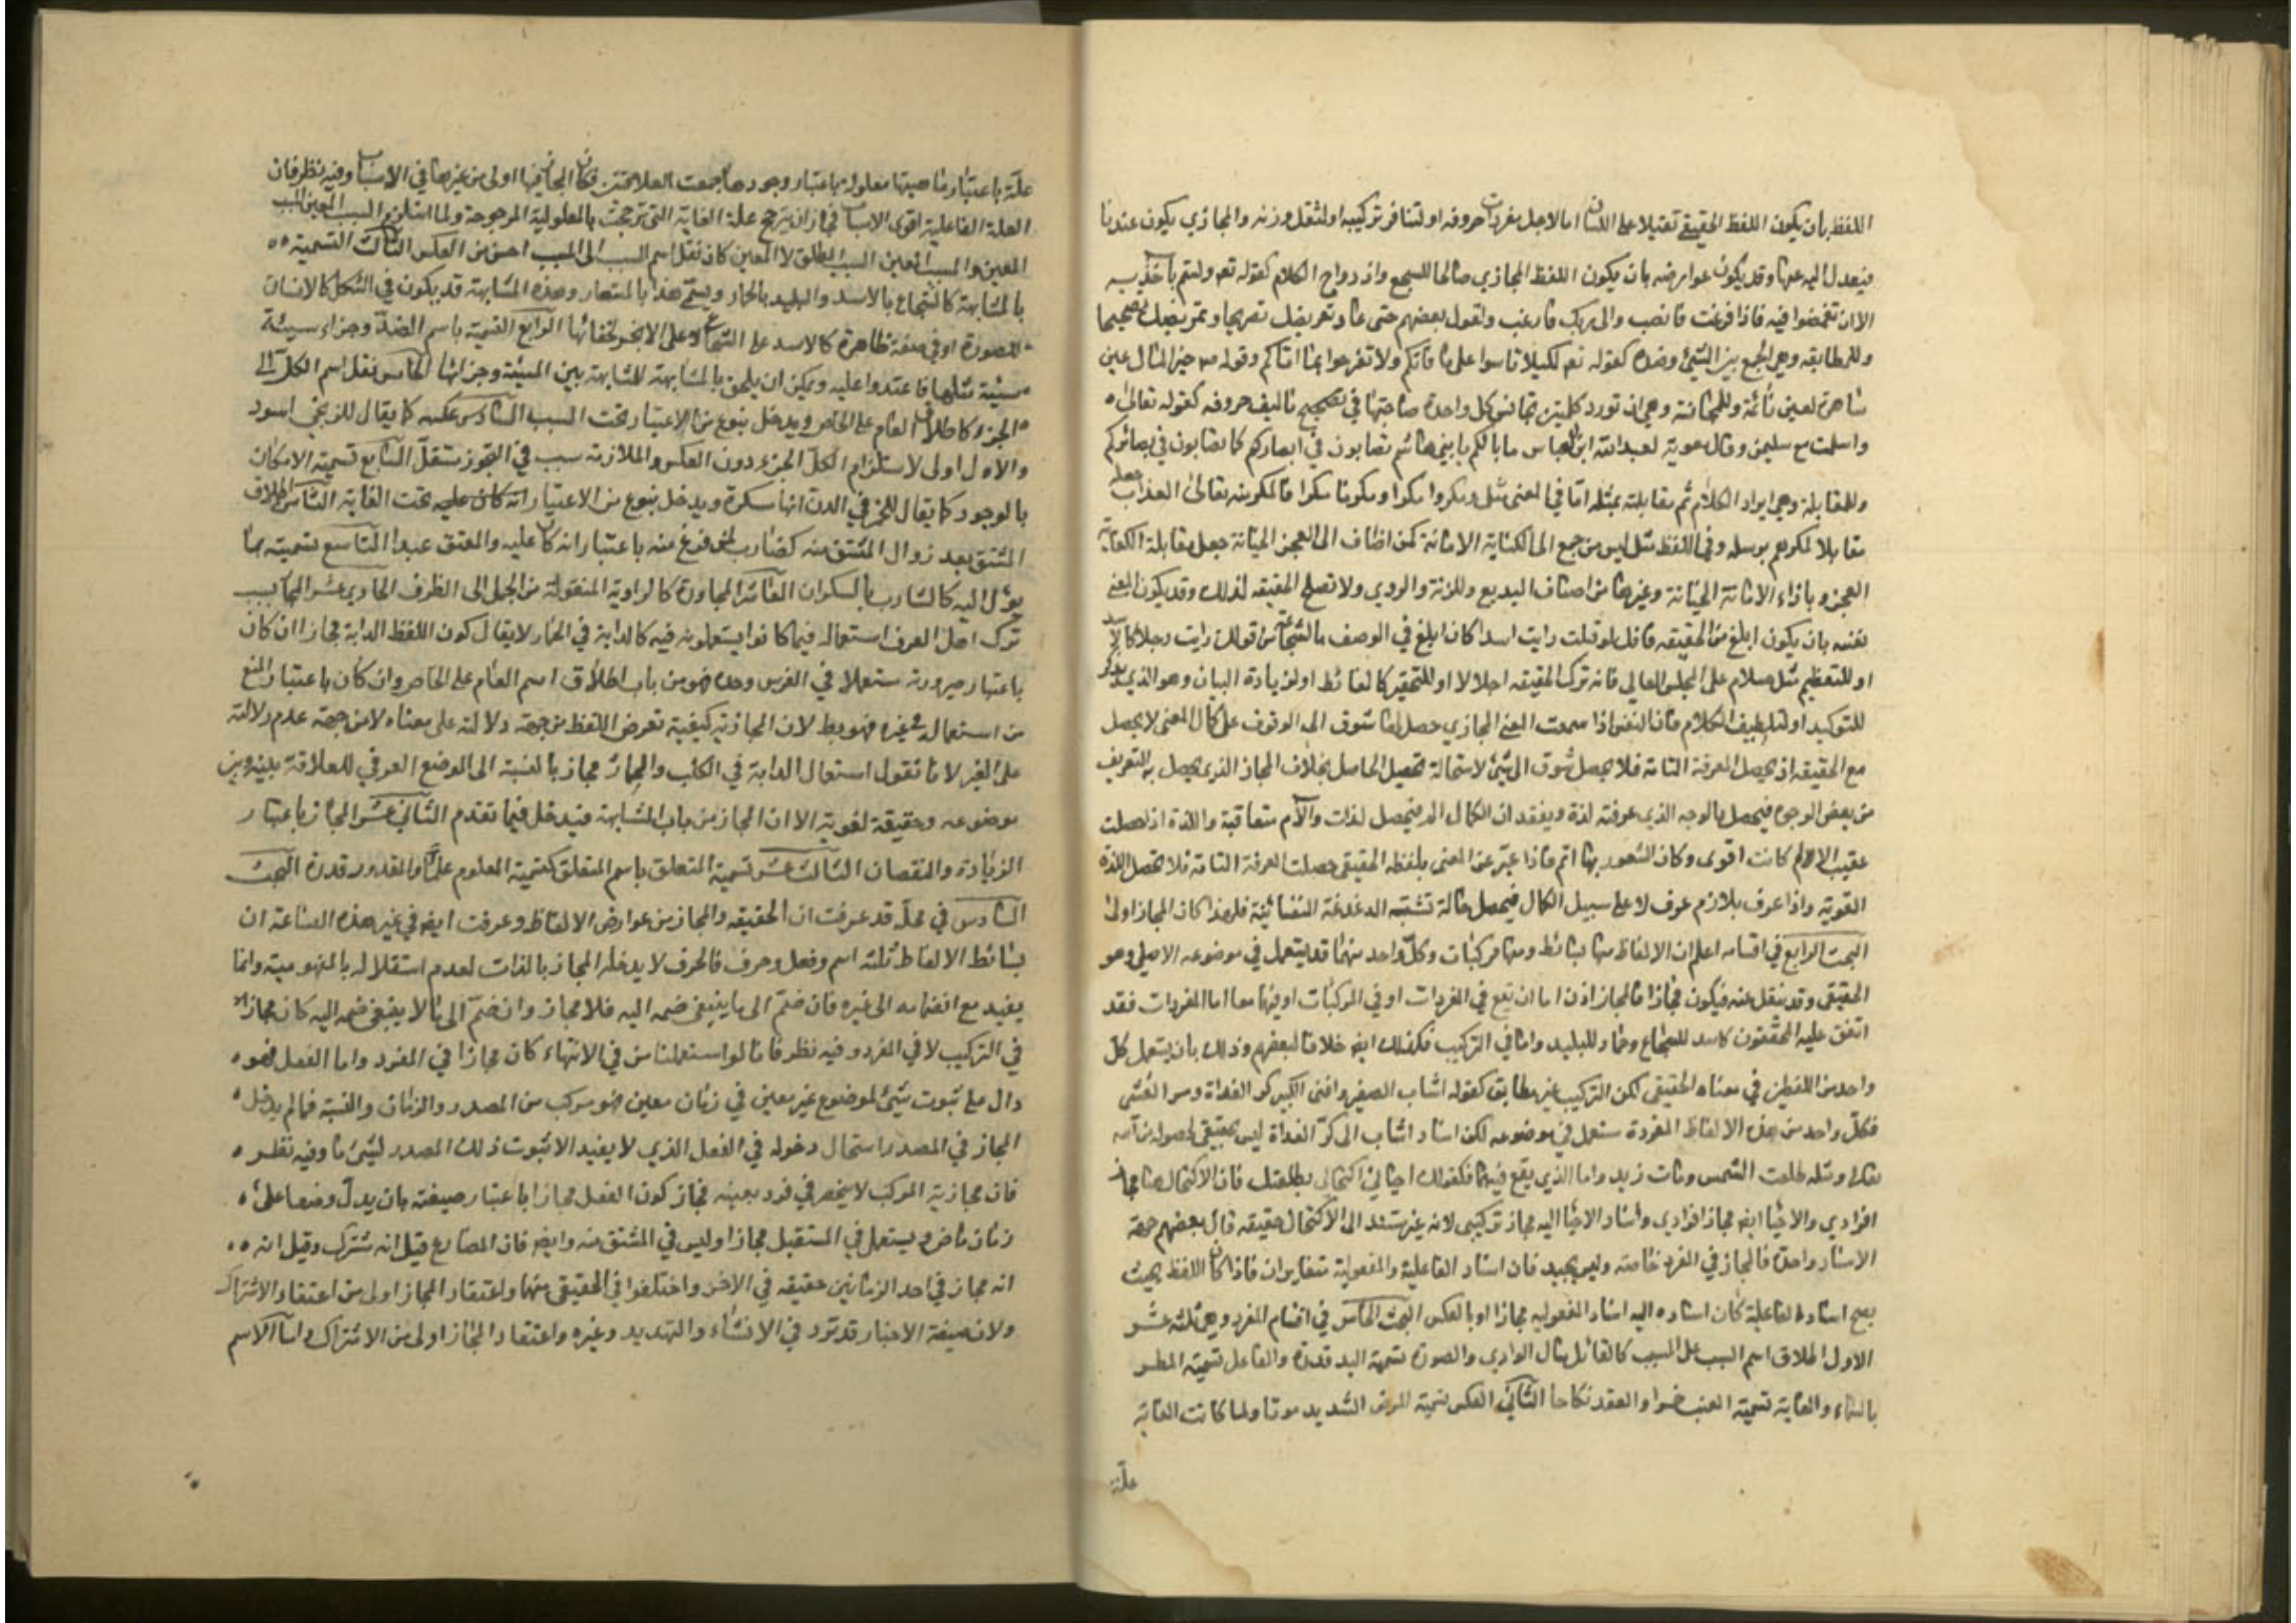 اللفظ بان يكون اللفظ الحقيقي ثقيلا على اللسان اما لاجل مفردات حروفه او لتنافر تركيبه او لثقل وزنه والمجازي يكون عذبا
فيعدل اليه عنها وقد يكون عوارضه بان يكون اللفظ المجازي صالحا للسجع وازدواج الكلام كقوله تعم ولستم بآخذيه
الا ان تغمضوا فيه فاذا فرغت فانصب والى ربك فارغب ولقول بعضهم حتى عاد تعريضك تصريحا وتمريضك تصحيحا
وللمطابقه وهي الجمع بين الشيئ وضده كقوله تعم لكيلا تاسوا على ما فاتكم ولا تفرحوا بما اتاكم وقوله ص خير المال عين
ساهرة لعين نائمة وللمجانسة وهي ان تورد كلمتين تجانس كل واحدة صاحبتها في تصحيح تاليف حروفه كقوله تعالى
واسلمت مع سليمن وقال معوية لعبدالله ابن العباس ما بالكم يا بني هاشم تصابون في ابصاركم كما تصابون في بصائركم
وللمقابلة وهي ايراد الكلام ثم مقابلته بمثله اما في المعنى مثل ومكروا مكرا ومكرنا مكرا فالمكر منه تعالى العذاب جعله
مقابلا لمكرهم برسله وفي اللفظ مثل ليس من جمع الى الكفاية الامانة كمن اضاف الى العجز الخيانة جعل مقابلة الكفاية
العجز وبازاء الامانة الخيانة وغيرها من اصناف البديع وللزنة والروي ولا تصلح الحقيقه لذلك وقد يكون المعنى
نفسه بان يكون ابلغ من الحقيقه فانك لو قلت رايت اسدا كان ابلغ في الوصف بالشجاعة من قولك رايت رجلا كالاسد
او للتعظيم مثل سلام على المجلس العالي فانه ترك الحقيقه اجلالا او للتحقير كالغائط او لزيادة البيان وهو الذي يذكر
للتوكيد او لتلطيف الكلام فان النفس اذا سمعت المعنى المجازي حصل لها شوق الى الوقوف على كمال المعنى لا يحصل
مع الحقيقه اذ يحصل المعرفة التامة فلا يحصل شوق الى شيئ لاستحالة تحصيل الحاصل بخلاف المجاز الذي يحصل به التعريف
من بعض الوجوه فيحصل بالوجه الذي عرفته لذة وبفقدان الكمال الم فيحصل لذات وآلام متعاقبة واللذة اذا حصلت
عقيب الالم كانت اقوى وكان الشعور بها اتم فاذا عبر عن المعنى بلفظه الحقيقي حصلت المعرفة التامة فلا تحصل اللذة
القوية واذا عرف بلازم عرف لا على سبيل الكمال فيحصل حالة تشبه الدغدغة النفسانية فلهذا كان المجاز اولى
البحث الرابع في اقسامه اعلم ان الالفاظ منها بسائط ومنها مركبات وكل واحد منهما قد يستعمل في موضوعه الاصلي وهو
الحقيقي وقد ينقل عنه فيكون مجازا فالمجاز اذن اما ان يقع في المفردات او في المركبات او فيهما معا اما المفردات فقد
اتفق عليه المحققون كاسد للشجاع وحمار للبليد واما في التركيب فكذلك ايضا خلافا لبعضهم وذلك بان يستعمل كل
واحد من اللفظين في معناه الحقيقي لكن التركيب غير مطابق كقوله اشاب الصغير وافنى الكبير كر الغداة ومر العشي
فكل واحد من هذه الالفاظ المفردة مستعمل في موضوعه لكن اسناد اشاب الى كر الغداة ليس بحقيقي لحصوله من الله
تعالى ومثله طلعت الشمس ومات زيد واما الذي يقع فيهما فكقولك احياني اكتحالي بطلعتك فان الاكتحال هنا مجاز
افرادي والاحيا ايضا مجاز افرادي واسناد الاحيا اليه مجاز تركيبي لانه غير مستند الى الاكتحال حقيقه قال بعضهم جهة
الاسناد واحدة فالمجاز في المفرد خاصته وليس بجيد فان اسناد الفاعلية والمفعولية متغايران فاذا كان اللفظ بحيث
يصح اسناده الفاعلية كان اسناده اليه اسناد المفعوليه مجازا او بالعكس البحث الخامس في اقسام المفرد وهي ثلثه عشر
الاول اطلاق اسم السبب على المسبب كالقابل مثل سال الوادي والصورة تسمية اليد قدرة والفاعل تسمية المطر
بالسماء والغاية تسمية العنب خمرا والعقد نكاحا الثاني العكس تسمية المرض الشديد موتا ولما كانت الغاية
علة
علة باعتبار ماهيتها معلولة باعتبار وجودها جمعت العلاقتين فكان المجاز فيها اولى من غيرها في الاسباب وفيه نظر فان
العلة الفاعلية اقوى الاسباب فجاز ان يترجح علة الغاية التي ترجحت بالمعلولية المرجوحة ولما استلزم السبب المعين المسبب
المعين والمسبب المعين السبب المطلق لا المعين كان نقل اسم السبب الى المسبب احسن من العكس الثالث التسمية
بالمشابهة كالشجاع بالاسد والبليد بالحمار ويسمى هذا بالمستعار وهذه المشابهة قد يكون في الشكل كالانسان
للصورة او في صفة ظاهرة كالاسد على الشجاع لا على الابخر لخفائها الرابع التسمية باسم الضد وجزاء سيئة
سيئة مثلها فاعتدوا عليه ويمكن ان يلحق بالمشابهة للمشابهة بين السيئة وجزائها الخامس نقل اسم الكل الى
الجزء كاطلاق العام على الخاص ويدخل بنوع من الاعتبار تحت السبب السادس عكسه كما يقال للزنجي اسود
والاول اولى لاستلزام الكل الجزء دون العكس والملازمة سبب في التجوز مستقل السابع تسمية الامكان
بالوجود كما يقال للخمر في الدن انها مسكرة ويدخل بنوع من الاعتبار تحت الغاية الثامن اطلاق
المشتق بعد زوال المشتق منه كضارب لمن فرغ منه باعتبار انه كان عليه والمعتق عبدا التاسع تسميته بما
يؤل اليه كالشارب بالسكران العاشر المجاورة كالراوية المنقولة من الجمل الى الظرف الحادي عشر المجاز بسبب
ترك اهل العرف استعماله فيما كانوا يستعملونه فيه كالدابة في الحمار لا يقال كون اللفظ الدابة مجازا ان كان
باعتبار صيرورته مستعملا في الفرس وحده فهو من باب اطلاق اسم العام على الخاص وان كان باعتبار المنع
من استعماله في غيره فهو بط لان المجازية كيفية تعرض اللفظ من جهة دلالته على معناه لا من جهة عدم دلالته
على الغير لانا نقول استعمال الدابة في الكلب والحمار مجاز بالنسبة الى الوضع العرفي للعلاقة بينه وبين
موضوعه وحقيقة لغوية الا ان المجاز من باب المشابهة فيدخل فيما تقدم الثاني عشر المجاز باعتبار
الزيادة والنقصان الثالث عشر تسمية المتعلق باسم المتعلق كتسمية المعلوم علما والمقدور قدرة البحث
السادس في محله قد عرفت ان الحقيقه والمجاز من عوارض الالفاظ وعرفت ايضا في غير هذه الصناعة ان
بسائط الالفاظ ثلثه اسم وفعل وحرف فالحرف لا يدخله المجاز بالذات لعدم استقلاله بالمفهومية وانما
يفيد مع انضمامه الى غيره فان ضم الى ما ينبغي ضمه اليه فلا مجاز وان ضم الى ما لا ينبغي ضمه اليه كان مجازا
في التركيب لا في المفرد وفيه نظر فانا لو استعملنا من في الانتهاء كان مجازا في المفرد واما الفعل فهو
دال على ثبوت شيئ لموضوع غير معين في زمان معين فهو مركب من المصدر والزمان والنسبة فما لم يدخل
المجاز في المصدر استحال دخوله في الفعل الذي لا يفيد الا ثبوت ذلك المصدر لشيئ ما وفيه نظر
فان مجازية المركب لا ينحصر في فرد بعينه فجاز كون الفعل مجازا باعتبار صيغته بان يدل وضعا على
زمان ماض ويستعمل في المستقبل مجازا وليس في المشتق منه وايضا فان المضارع قيل انه مشترك وقيل انه
انه مجاز في احد الزمانين حقيقه في الاخر واختلفوا في الحقيقي منهما واعتقاد المجاز اولى من اعتقاد الاشتراك
ولان صيغة الاخبار قد ترد في الانشاء والتهديد وغيره واعتقاد المجاز اولى من الاشتراك واما الاسم